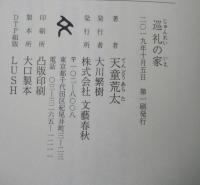 じゅんれい いえ
巡礼の家
二〇一九年十月五日 第一刷発行
てんどうあらた
著者 天童荒太
発行者 大川繁樹
発行所 株式会社 文藝春秋
〒一〇二-八〇〇八
東京都千代田区紀尾井町三-二三
電話 〇三-三二六五-一二一一
印刷所 凸版印刷
製本所 大口製本
DTP組版 LUSH